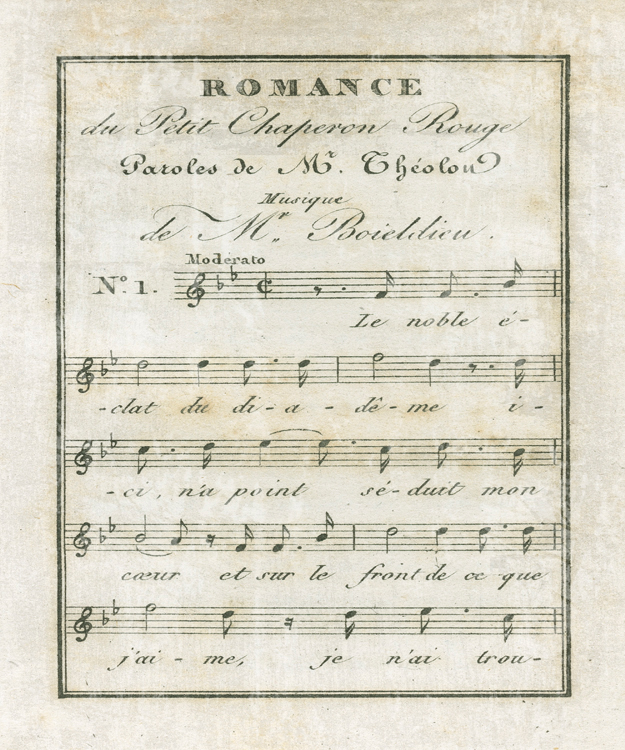 ROMANCE
du Petit Chaperon Rouge
Paroles de Mr. Théolou
Musique
de Mr. Boieldieu.
Moderato
No. 1.
Le noble é-
-clat du di-a-dê-me i-
-ci, n'a point sé-duit mon
cœur et sur le front de ce que
j'ai-me, je n'ai trou-